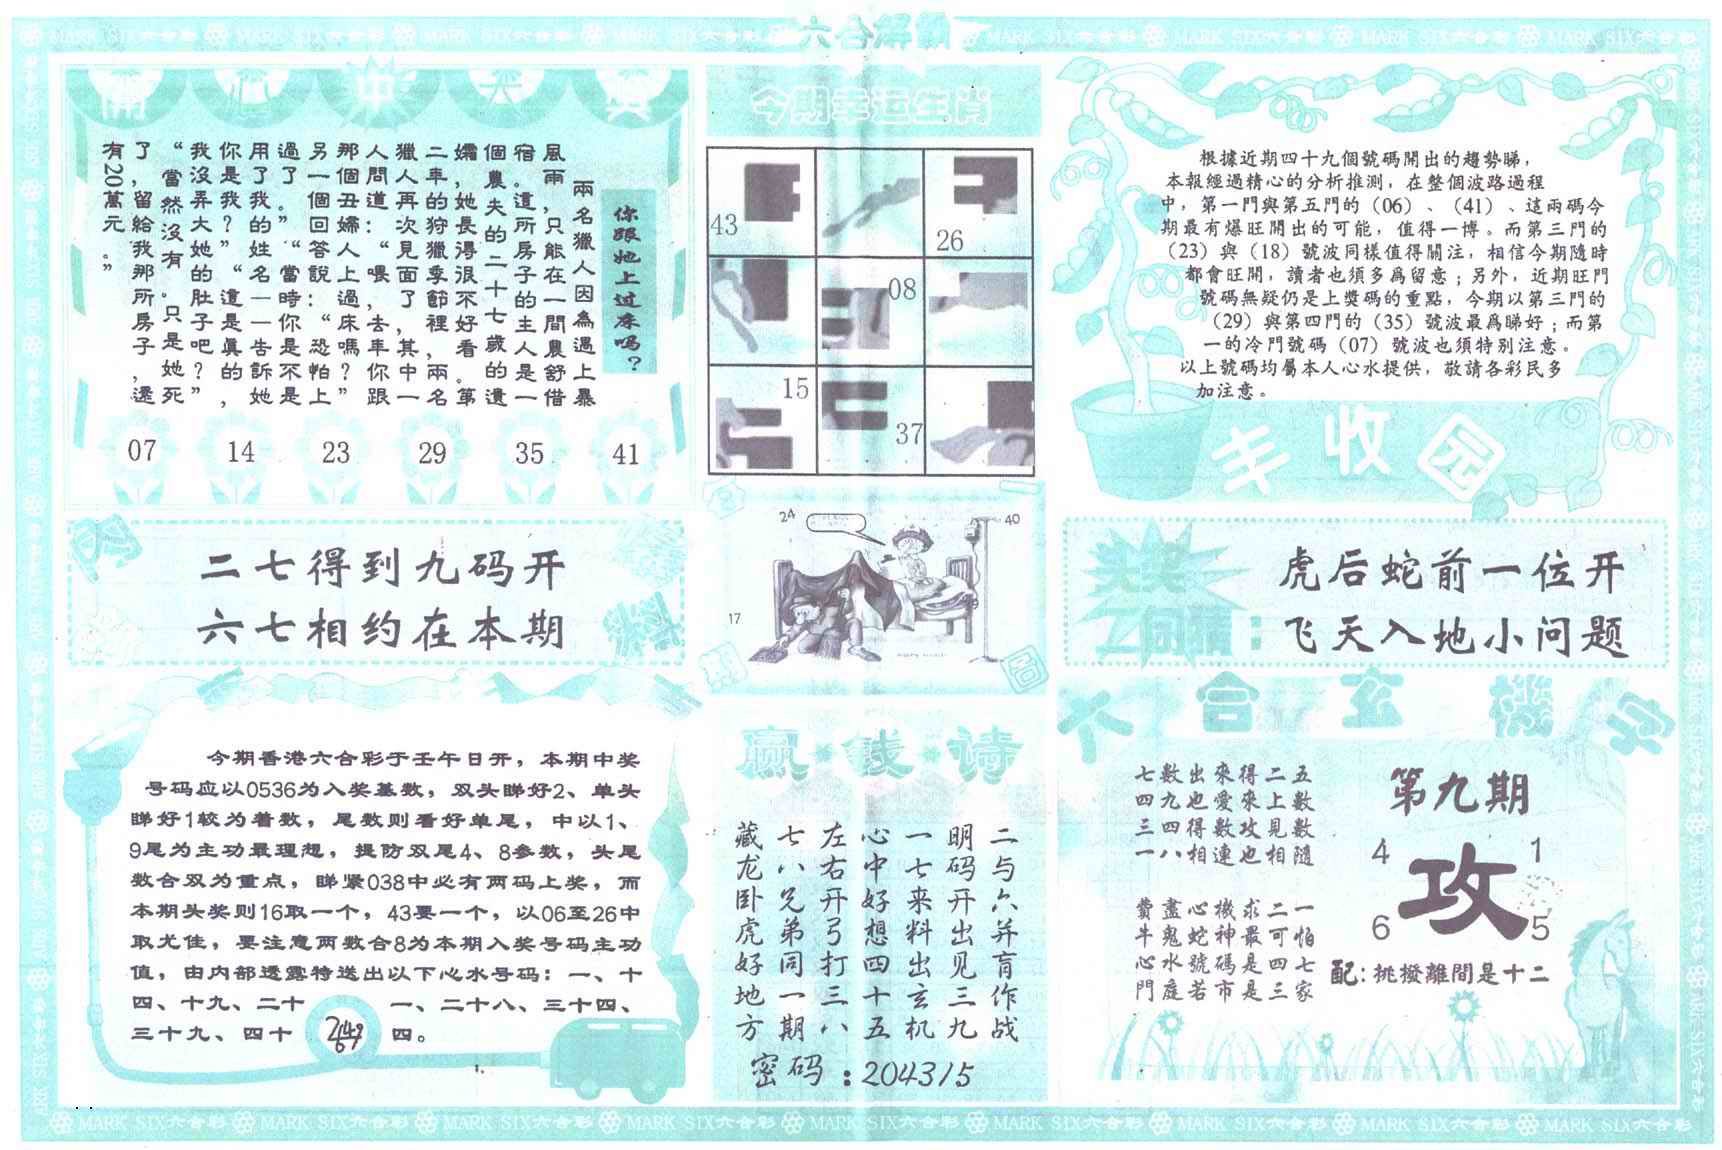 六合解霸
開心中大獎
你跟她上过床吗？
兩名獵人因為遇上暴
風雨，只能在一間農舒借
宿。這所房子的主人是一
個農夫的二十七歲的遺
孀，她長得很不好看。第
二車的狩獵季節裡，兩名
獵人再次見面了，其中一
人問道：“喂，去車你跟
那個丑婦人上過床嗎？”
另一個回答說：“恐怕上
過了。”“當時你是不是
用了我的姓名一一告訴她
你是我？”“這是眞的，
我沒弄大她的肚子吧？”
“當然沒有。只是她死
了，留給我那所房子，還
有20萬元。”
07 14 23 29 35 41
今期幸运生肖
43
26
08
15
37
根據近期四十九個號碼開出的趨勢睇，
本報經過精心的分析推測，在整個波路過程
中，第一門與第五門的（06）、（41）、這兩碼今
期最有爆旺開出的可能，值得一博。而第三門的
（23）與（18）號波同樣值得關注，相信今期隨時
都會旺開，讀者也須多爲留意；另外，近期旺門
號碼無疑仍是上獎碼的重點，今期以第三門的
（29）與第四門的（35）號波最爲睇好；而第
一的冷門號碼（07）號波也須特別注意。
以上號碼均屬本人心水提供，敬請各彩民多
加注意。
丰收园
二七得到九码开
六七相约在本期
24
40
17
头奖
虎后蛇前一位开
飞天入地小问题
今期香港六合彩于壬午日开，本期中奖
号码应以0536为入奖基数，双头睇好2、单头
睇好1较为着数，尾数则看好单尾，中以1、
9尾为主功最理想，提防双尾4、8参数，头尾
数合双为重点，睇紧038中必有两码上奖，而
本期头奖则16取一个，43要一个，以06至26中
取尤佳，要注意两数合8为本期入奖号码主功
值，由内部透露特送出以下心水号码：一、十
四、十九、二十一、二十八、三十四、
三十九、四十四。
赢钱诗
二与六并肓作战
明码开出见三九
一七来料出玄机
心中好想四十五
左右开弓打三八
七八兄弟同一期
藏龙卧虎好地方
密码：204315
六合玄機字
七數出來得二五
四九也愛來上數
三四得數攻見數
一八相連也相隨
費盡心機求二一
牛鬼蛇神最可怕
心水號碼是四七
門庭若市是三家
第九期
4 1
攻
6 5
配：挑撥離間是十二
MARK SIX六合彩